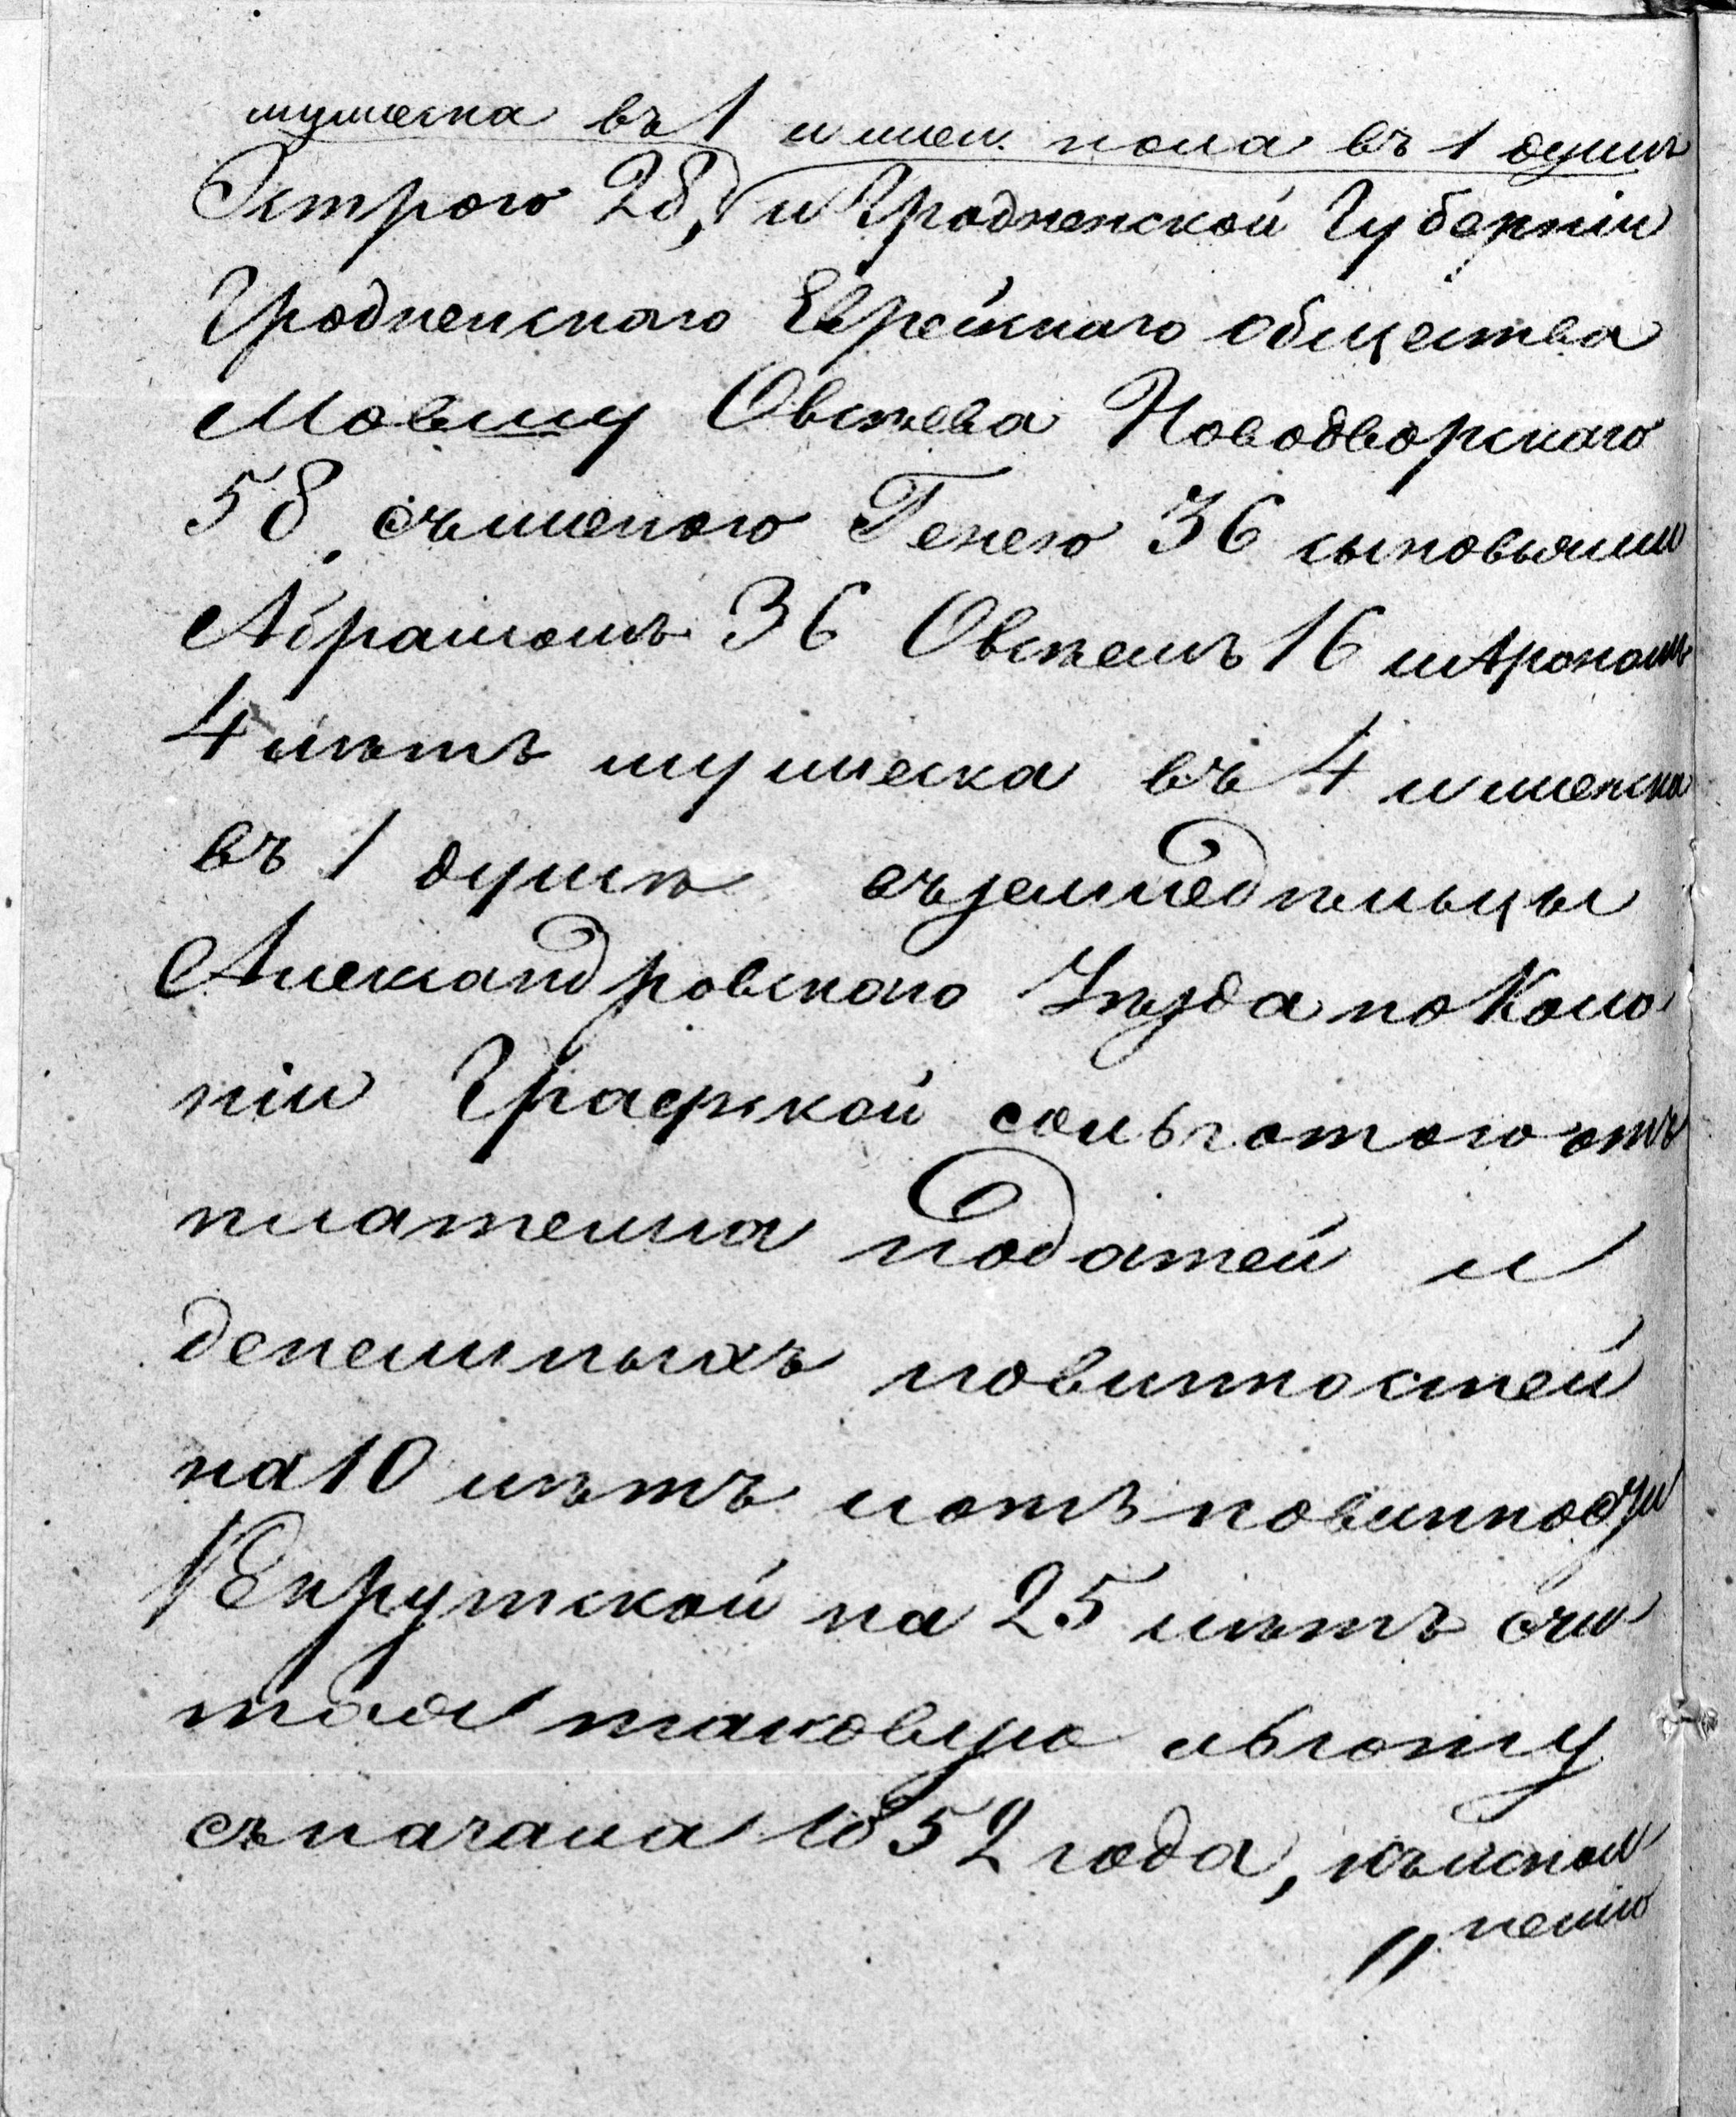 мужеска въ 1 и жен. пола въ 1 душѣ
Эстрою 28, и Гродненской Губерніи
Гродненскаго Еврейскаго общества
Мовшу Овсѣева Новодворскаго
58, съженою Генею 36 сыновьями
Абрамомъ 36 Овсѣемъ 16 и Арономъ
4 лѣтъ мужеска въ 4 и женска
въ 1 душѣ въземледѣльцы
Александровскаго Уѣзда по Коло
ніи Графской сольготою отъ
платежа податей и
денежныхъ повинностей
на 10 лѣтъ и отъ повинности
Рекрутской на 25 лѣтъ счи
тая таковую льготу
съначала 1852 года, къиспол
„нению